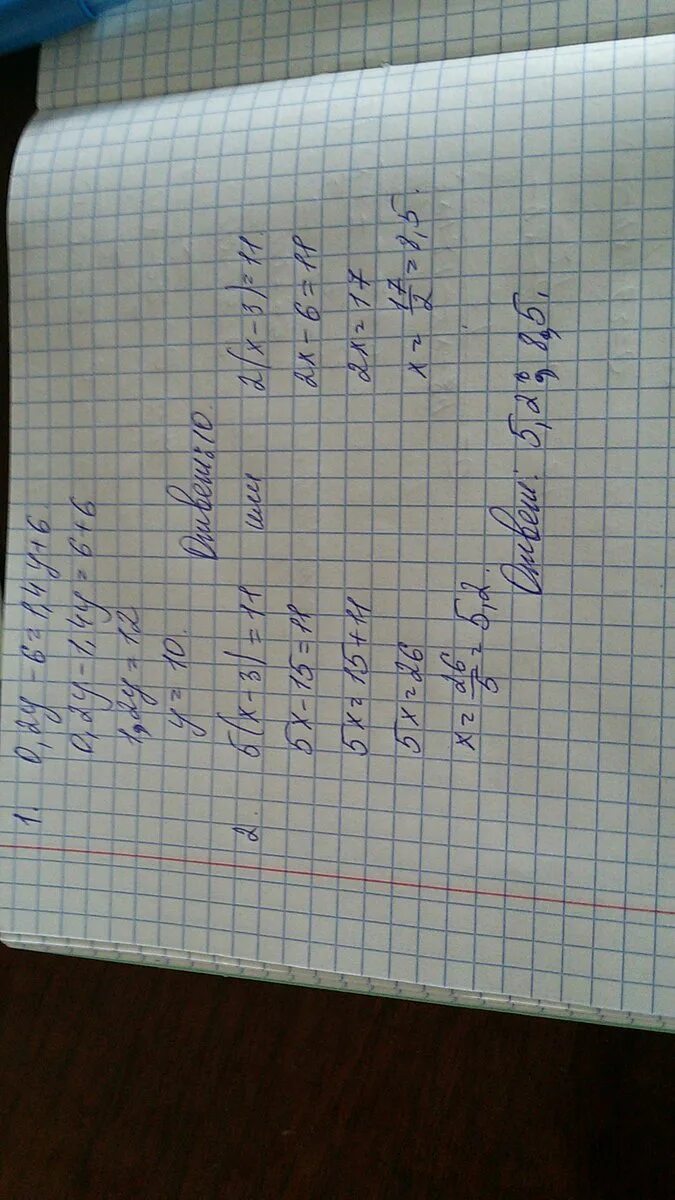 1. 0,2y - 6 = 1,4y + 6
0,2y - 1,4y = 6 + 6
1,2y = 12
y = 10.
Ответ: 10.
2. 5(x - 3) = 11 или 2(x - 3) = 11
5x - 15 = 11 2x - 6 = 11
5x = 15 + 11 2x = 17
5x = 26 x = 17/2 = 8,5.
x = 26/5 = 5,2.
Ответ: 5,2; 8,5.